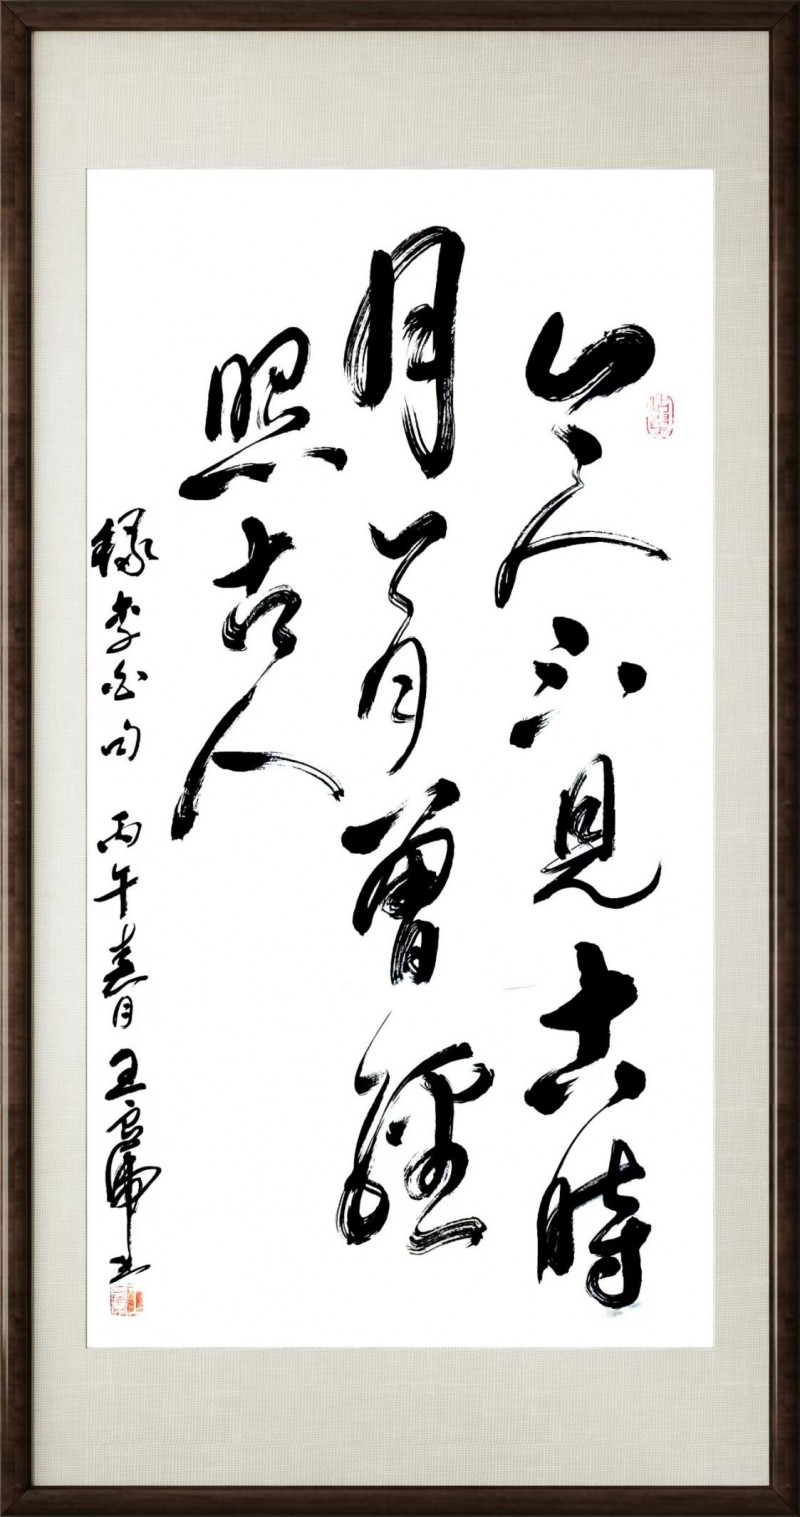 今人不見古時
月今月曾經
照古人
録李白句 丙午春月 王